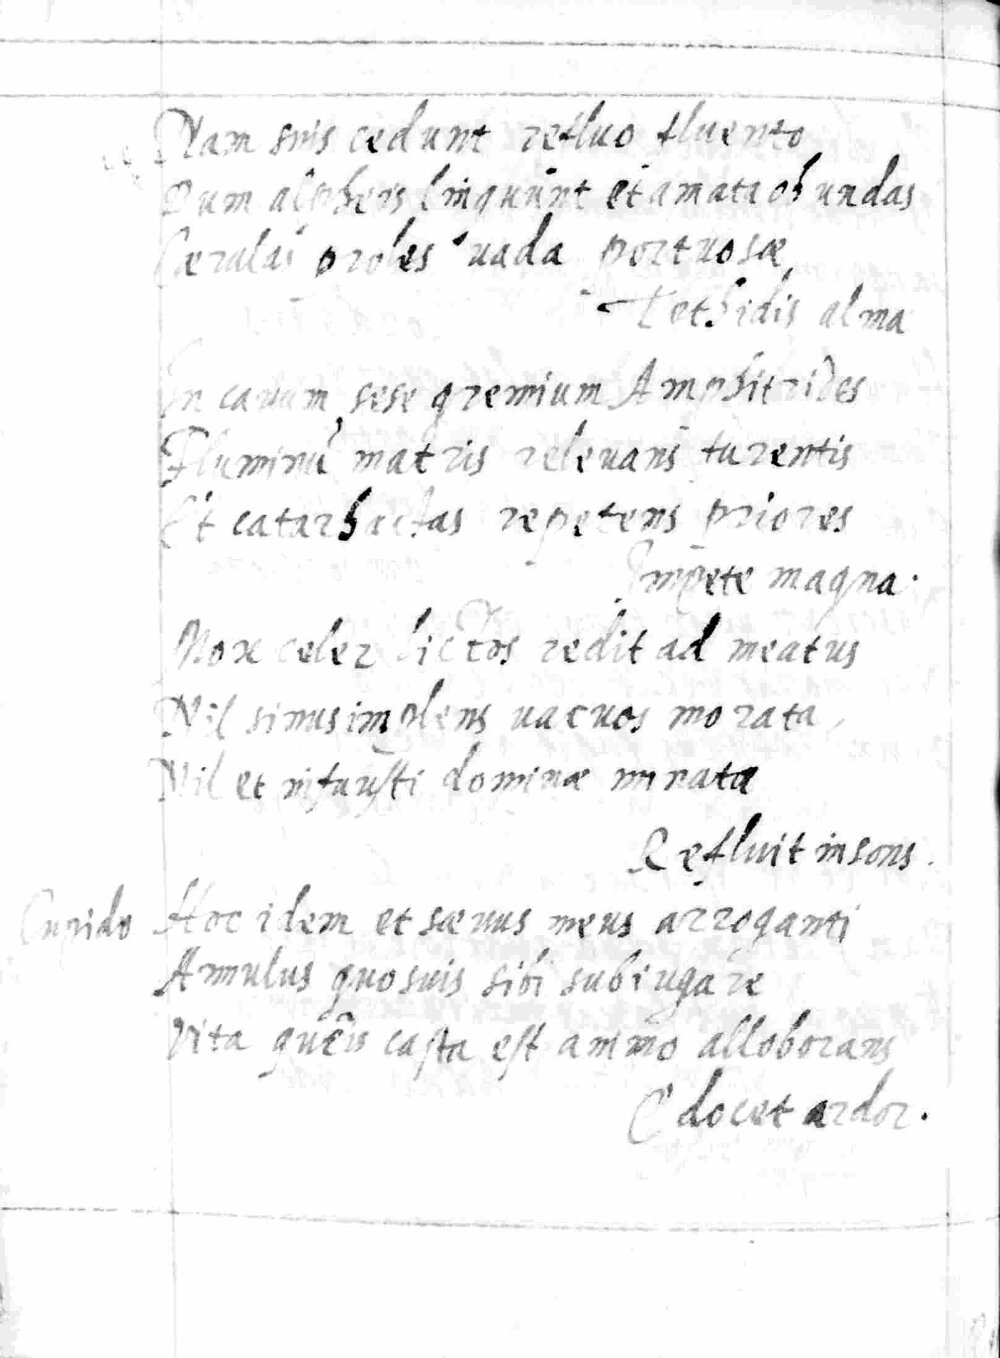 Nam suis cedunt refluo fluento
Dum alpheis linquunt et amata ob undas
Cærulæ proles vada portuosæ
Tethidis alma
In cavum sese gremium Amphitrides
Fluminũ matris relevans furentis
Et catarhactas repetens priores
Impete magna.
Mox celer lictos redit ad meatus
Nil sinus implens vacuos morata
Nil et infausti dominæ minata
Refluit insons.
Cupido Hoc idem et sævus meus arroganti
Annulus quosvis sibi subiugare
Vita quẽis casta est animo alloborans
Edocet ardor.